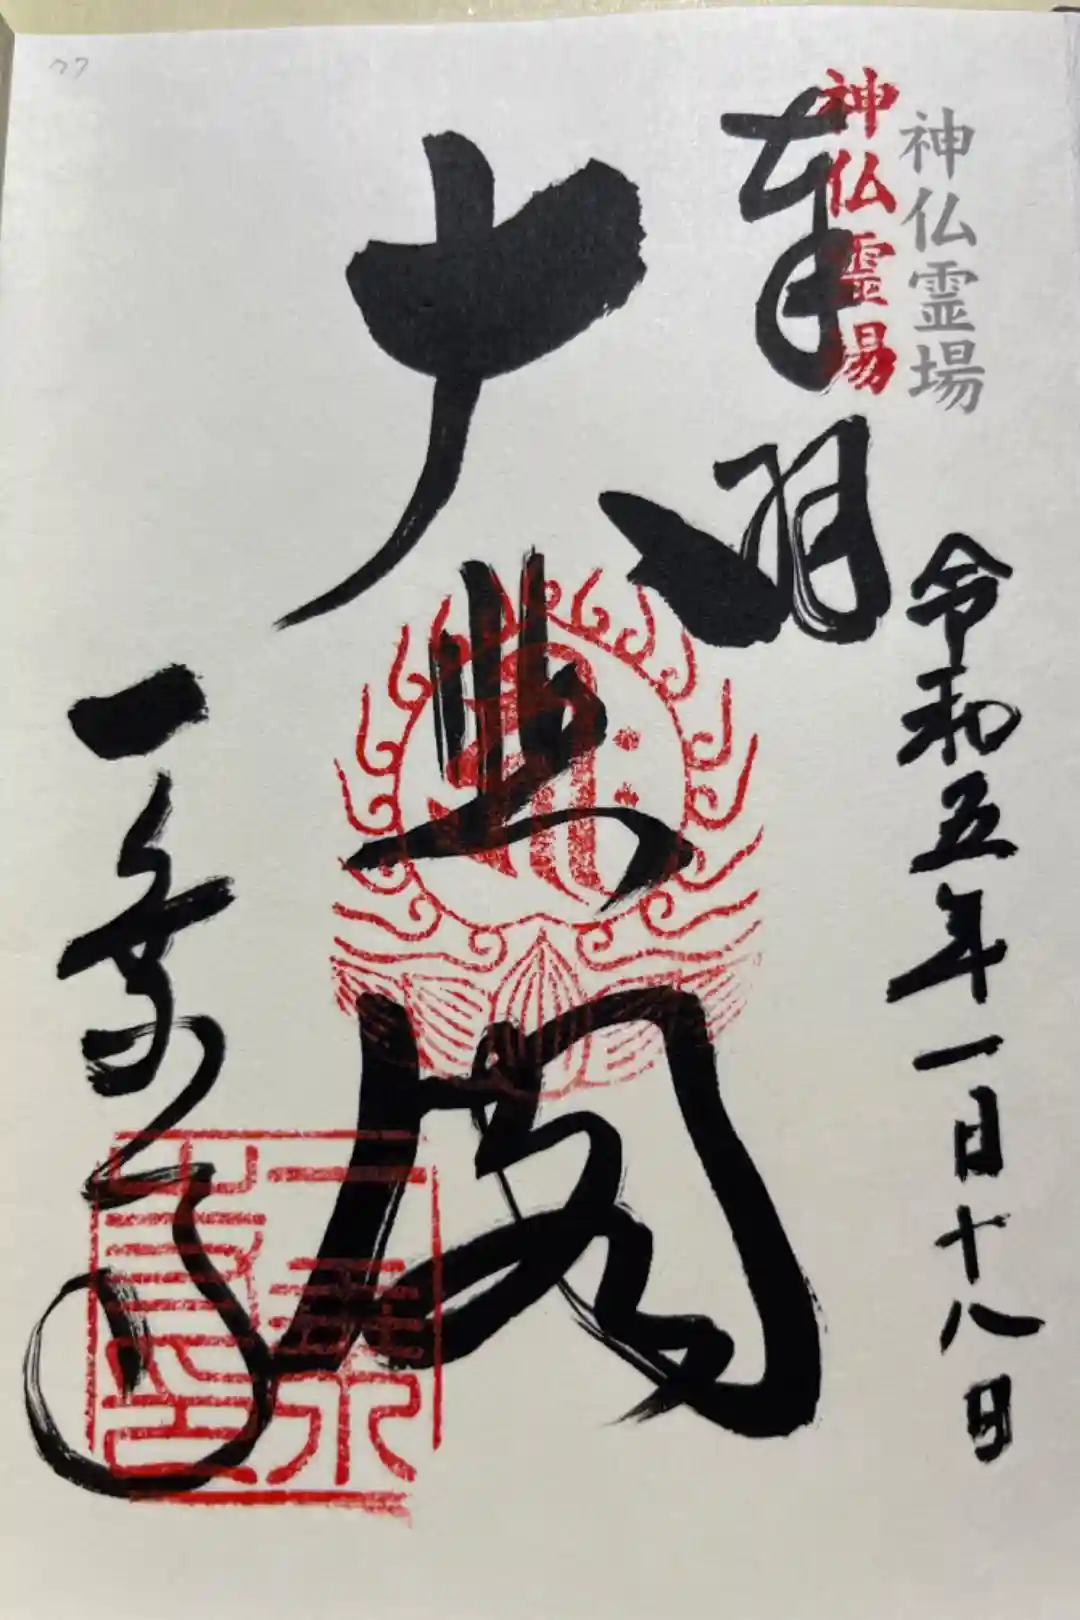 77
神仏霊場
神仏霊場
奉拝
令和五年一月十八日
大悲閣
一乗寺